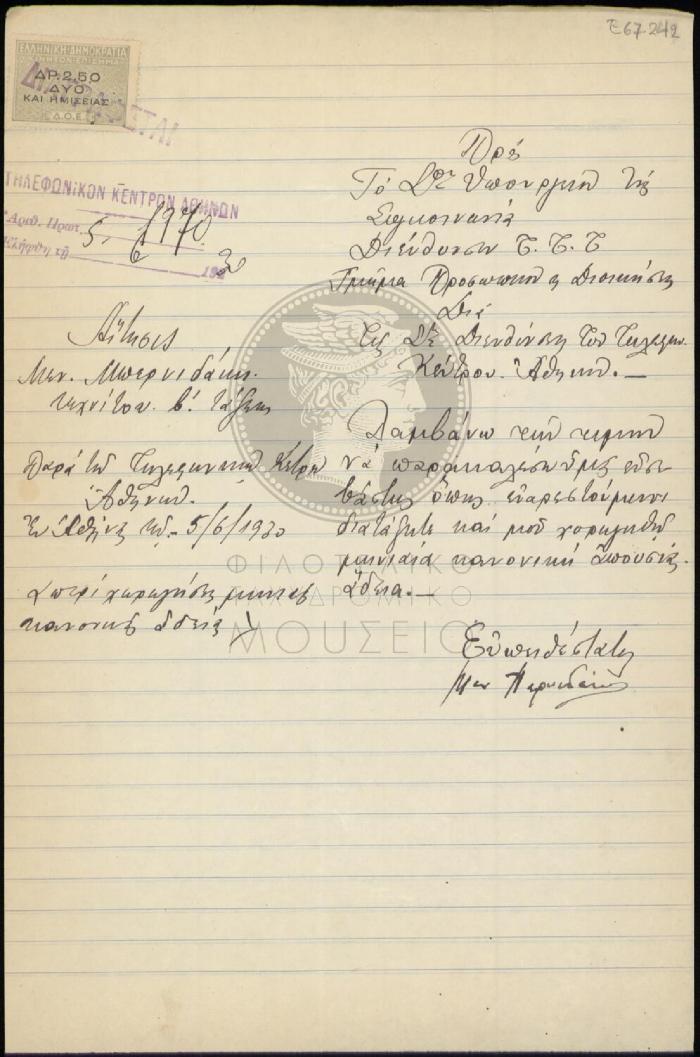 Ε67.242
ΕΛΛΗΝΙΚΗ ΔΗΜΟΚΡΑΤΙΑ
ΔΡ. 2,50
ΔΥΟ
ΚΑΙ ΗΜΙΣΕΙΑΣ
Δ.Ο.Ε.
ΤΗΛΕΦΩΝΙΚΟΝ ΚΕΝΤΡΟΝ ΑΘΗΝΩΝ
Αριθ. Πρωτ. 1970
Ελήφθη τη 5/6 1930
Πρός
Τό Σον Υπουργείον της
Συγκοινωνίας
Διεύθυνσιν Τ.Τ.Τ
Τμήμα Προσωπικού & Διοικήσεως
Διά
της Σης Διευθύνσεως του Τηλεφων.
Κέντρου Αθηνών.—
Αίτησις
Μαν. Μπερνιδάκη
τεχνίτου β' τάξεως
παρά τω Τηλεφωνικώ Κέντρω
Αθηνών.
Εν Αθήναις τη 5/6/1930
περί χορηγήσεως μηνιαίας
κανονικής αδείας
Λαμβάνω την τιμήν
νά παρακαλέσω υμάς ευσε
βάστως όπως ευαρεστούμενοι
διατάξητε καί μοί χορηγηθή
μηνιαία κανονική απουσίας
άδεια.—
Ευπειθέστατος
Μαν Μπερνιδάκης
ΦΙΛΟΤΕΛΙΚΟ
ΤΑΧΥΔΡΟΜΙΚΟ
ΜΟΥΣΕΙΟ